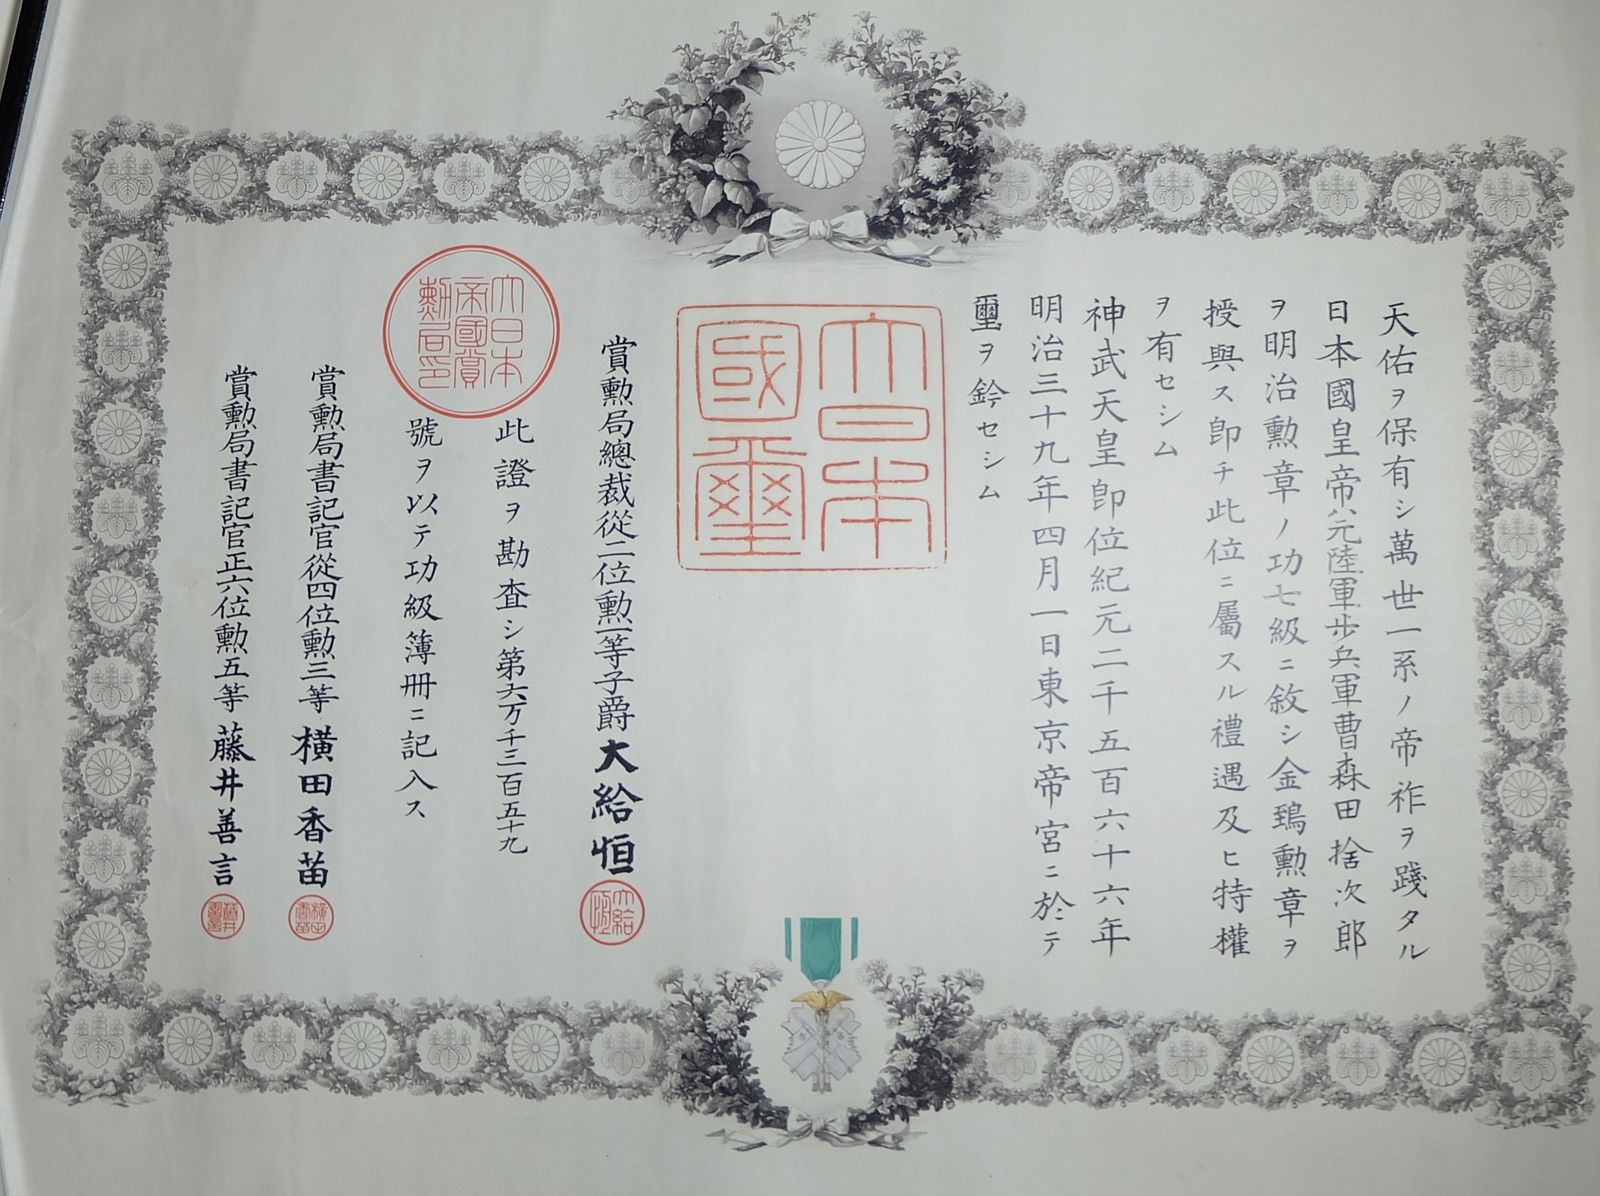 天佑ヲ保有シ萬世一系ノ帝祚ヲ踐タル
日本國皇帝ハ元陸軍歩兵軍曹森田捨次郎
ヲ明治勲章ノ功七級ニ敘シ金鵄勲章ヲ
授與ス卽チ此位ニ屬スル禮遇及ヒ特權
ヲ有セシム
神武天皇卽位紀元二千五百六十六年
明治三十九年四月一日東京帝宮ニ於テ
璽ヲ鈐セシム
大日本
國璽
賞勲局總裁從二位勲一等子爵大給恒
大給
恒
大日本
帝國賞
勲局印
此證ヲ勘査シ第六万千三百五十九
號ヲ以テ功級簿冊ニ記入ス
賞勲局書記官從四位勲三等橫田香苗
橫田
香苗
賞勲局書記官正六位勲五等藤井善言
藤井
善言